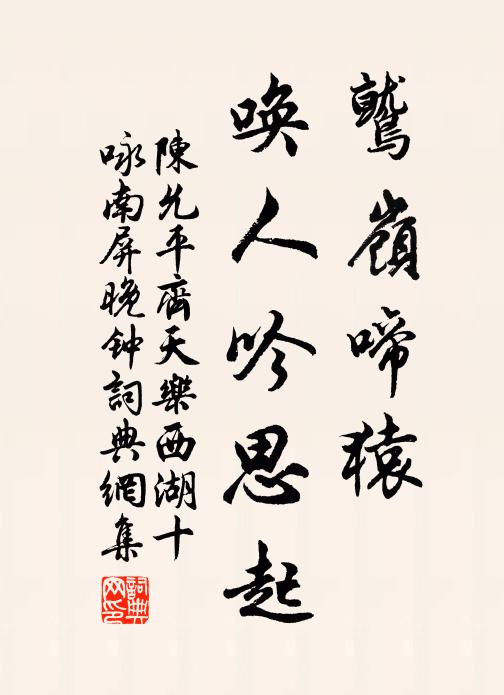 鷲嶺啼猿
喚人吟思起
陳允平齊天樂西湖十
咏南屏晚钟詞典網集
詞典網印